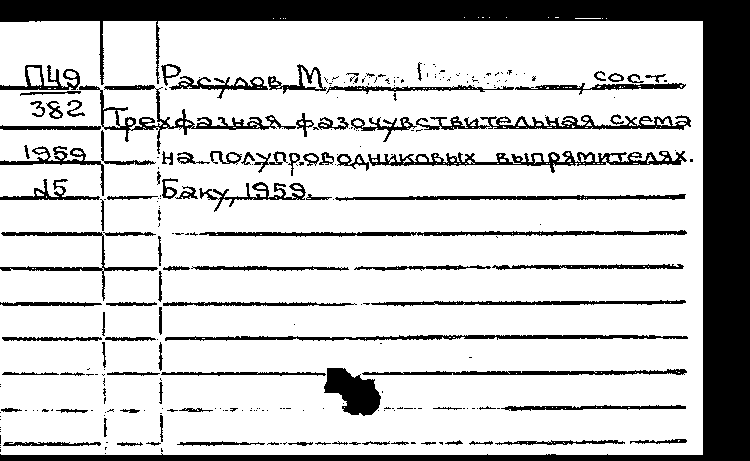 П49
382
1959
25
Расулов, сост.
Трехфазная фазочувствительная схема
на полупроводниковых выпрямителях.
Баку, 1959.